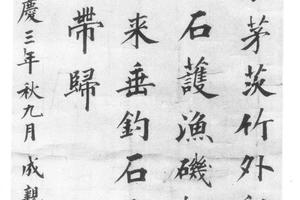 茅茨竹外
石護漁磯
来垂釣石
帶歸
慶三年秋九月成親